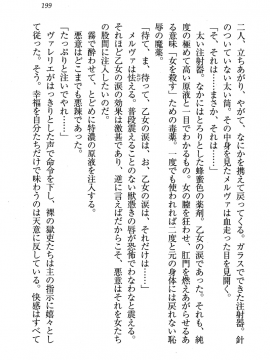 199
二人、立ちあがり、やがてなにかを携えて戻ってくる。ガラスでできた注射器。針
のついていない太い筒。そのなかのものを見て、メルヴァは
「それは……まさか、それは……」
太い注射器。なかにはとろっとした蜂蜜色の薬剤。乙女の涙だ。それも、純
度のとても高い原液！　一度でも女の膣に入れれば、肛門を燃えあがらせ、あ
る意味「女を殺す」ための毒薬。一度でも使われれば二度と元の身体には戻れない恥
辱の魔薬。
「待て、ま、待って、乙女の涙は、あ、乙女の涙は、それだけは……」
メルヴァは怯える。普段震えることのない獣憑きの唇が恐怖でわななと震える。
それほど乙女の涙の効果は激甚であり、逆に言えばだからこそ、悪意はそれを女たち
の股間に注入したいのだ。
霧で酔わせて、とどめに特濃の原液を注入する。
悪意はどこまでも悪辣であった。
「たっぷりと注いでやれ……」
ヴァレリエがはっきりとした声で命令を下し、裸の獄吏たちは主の指示に嬉々とし
て従う。そう、幸福を自分たちだけで味わうのは天意に反している。快感はすべて